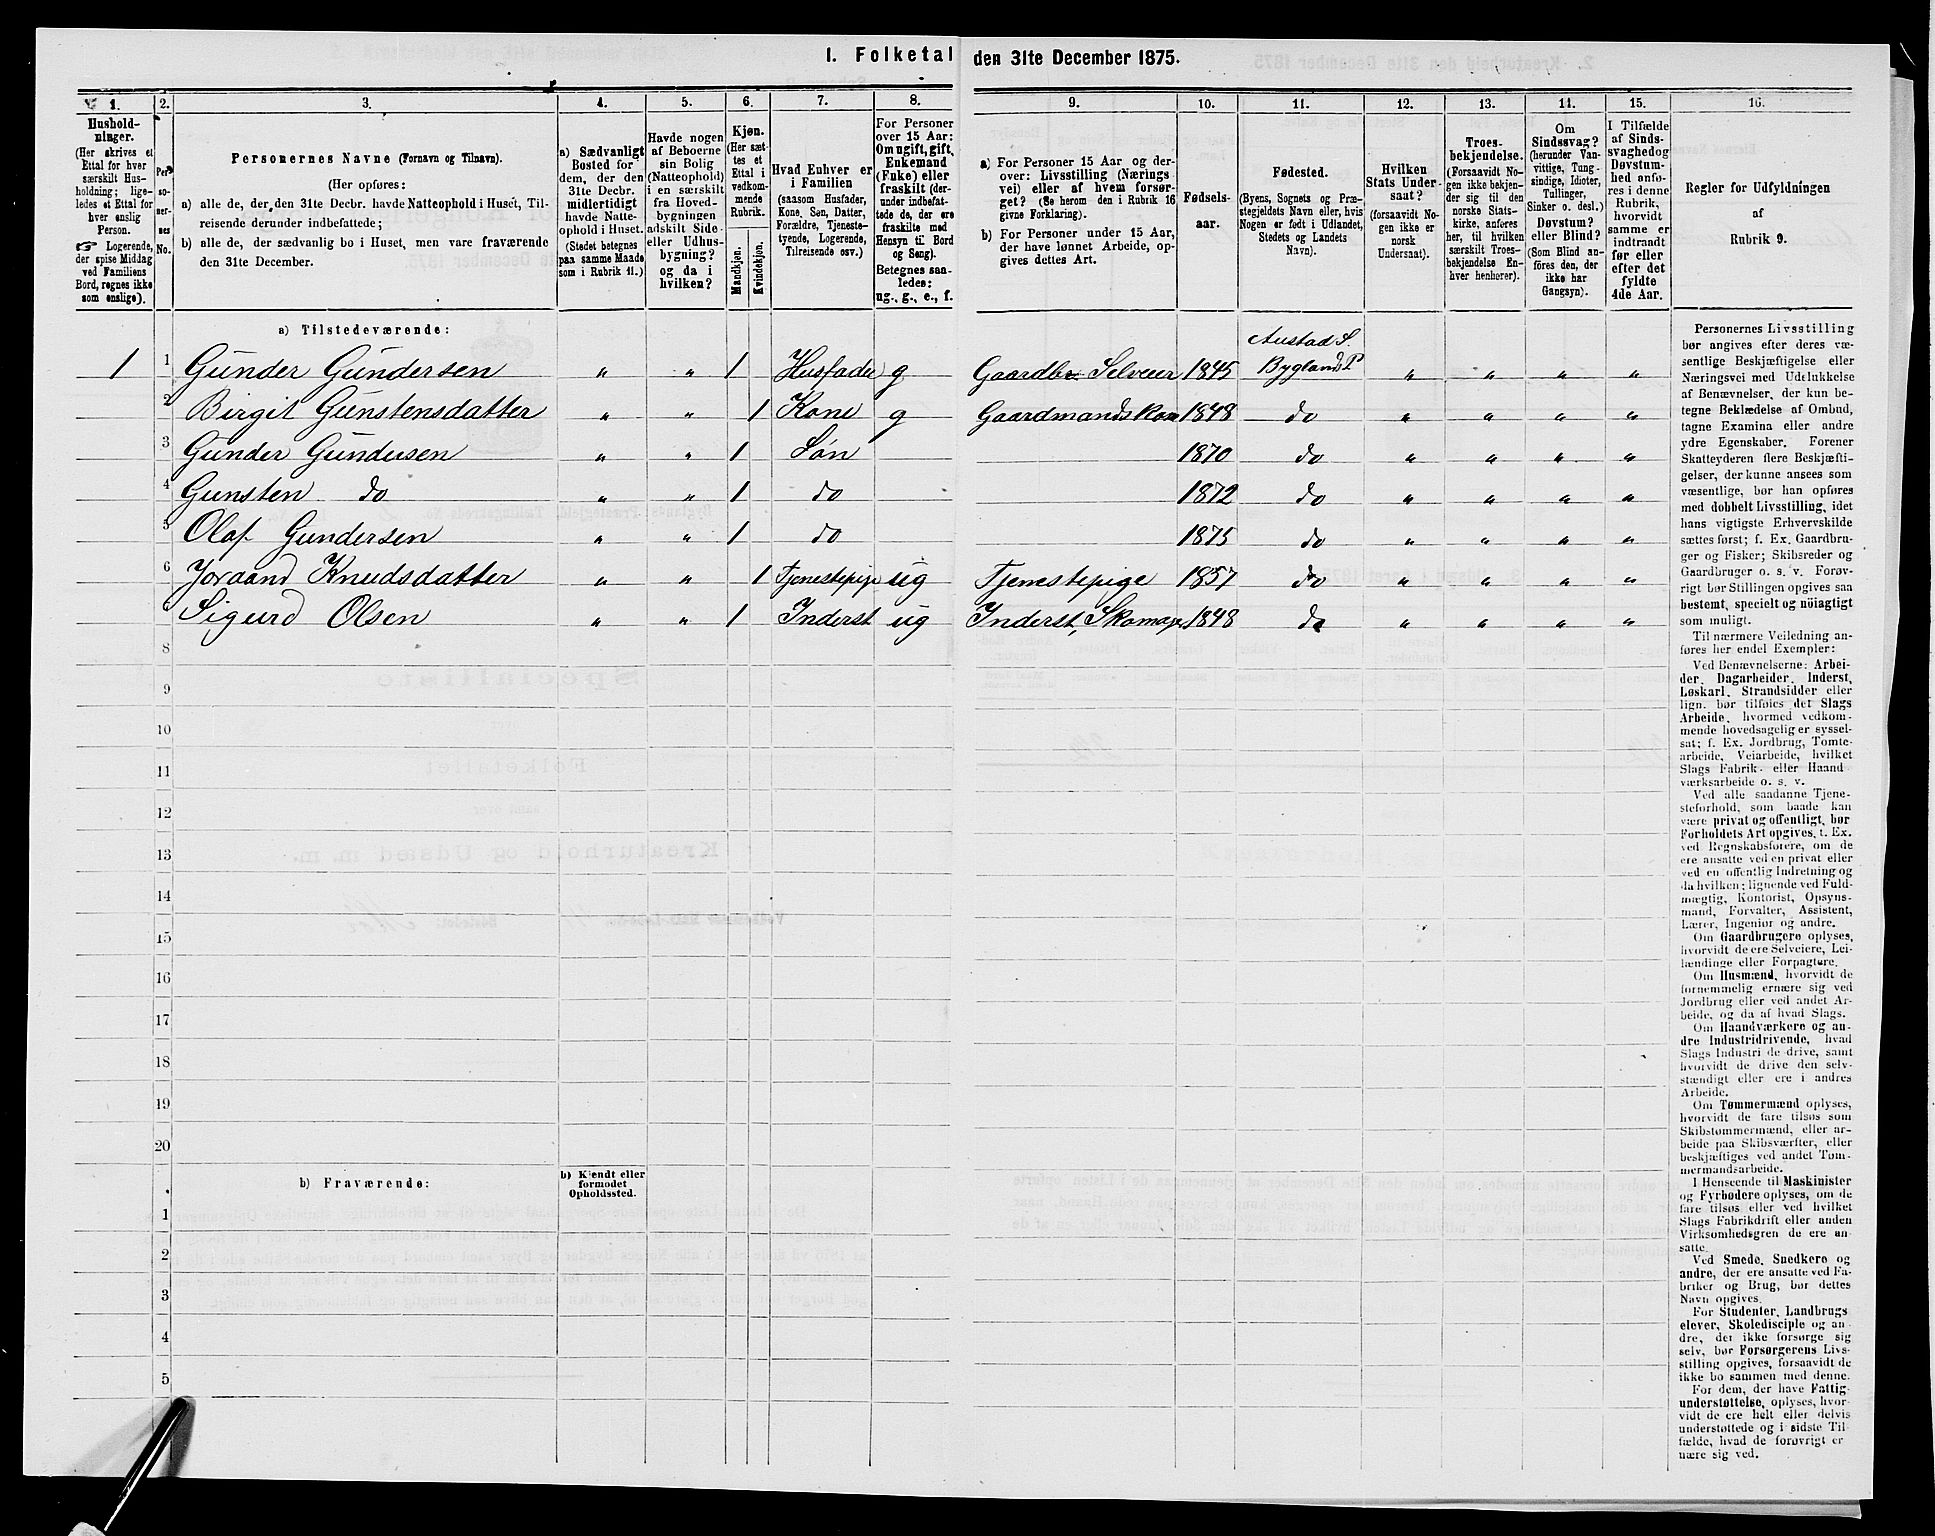 1. Folketal den 31te December 1875.
1. 2. 3. 4. 5. 6. 7. 8. 9. 10. 11. 12. 13. 14. 15. 16.
Hushold-
ninger.
(Her skrives et
Ettal for hver
særskilt Hus-
holdning; lige-
ledes et Ettal for
hver enslig
Person.
☞ Logerende,
der spise Middag
ved Familiens
Bord, regnes ikke
som enslige).
Per-
so-
ner-
nes
No.
Personernes Navne (Fornavn og Tilnavn).
(Her opføres:
a) alle de, der den 31te Decbr. havde Natteophold i Huset, Til-
reisende derunder indbefattede;
b) alle de, der sædvanlig bo i Huset, men vare fraværende
den 31te December.)
a) Sædvanligt
Bosted for
dem, der den
31te Decbr.
midlertidigt
havde Natte-
ophold i Huset.
(Stedet betegnes
paa samme Maade
som i Rubrik 11.)
Havde nogen
af Beboerne
sin Bolig
(Natteophold)
i en særskilt
fra Hoved-
bygningen
adskilt Side-
eller Udhus-
bygning?
og da i
hvilken?
Kjøn.
(Her sæt-
tes et
Ettal i
vedkom-
mende
Rubrik.
Mandkjøn.
Kvindekjøn.
Hvad Enhver er
i Familien
(saasom Husfader,
Kone, Søn, Datter,
Forældre, Tjeneste-
tyende, Logerende,
Tilreisende osv.)
For Personer
over 15 Aar:
Om ugift, gift,
Enkemand
(Enke) eller
fraskilt (der-
under indbefat-
tede de, der ere
fraskilte med
Hensyn til Bord
og Seng).
Betegnes saa-
ledes:
ug., g., e., f.
a) For Personer 15 Aar og der-
over: Livsstilling (Nærings
vei) eller af hvem forsør-
get? (Se herom den i Rubrik 16
givne Forklaring).
b) For Personer under 15 Aar,
der have lønnet Arbeide, op-
gives dettes Art.
Fødsels-
aar.
Fødested.
(Byens, Sognets og Præ-
stegjeldets Navn eller, hvis
Nogen er født i Udlandet,
Stedets og Landets
Navn).
Hvilken
Stats Under-
saat?
(forsaavidt No-
gen ikke er
norsk
Undersaat).
Troes-
bekjendelse.
(Forsaavidt No-
gen ikke bekjen-
der sig til den
norske Stats-
kirke, anføres
her, til hvilken
særskilt Troes-
bekjendelse En-
hver henhører).
Om
Sindssvag?
(herunder Van-
vittige, Tung-
sindige, Idioter,
Tullinger,
Sinker o. desl.)
Døvstum?
eller Blind?
(Som Blind an-
føres den, der
ikke har
Gangsyn).
I Tilfælde
af Sinds-
svaghed og
Døvstum-
hed anfø-
res i denne
Rubrik,
hvorvidt
samme er
indtraadt
før eller
efter det
fyldte
4de Aar.
Regler for Udfyldningen
af
Rubrik 9.
a) Tilstedeværende:
1 1 Gunder Gundersen " " 1 Husfader g Gaardbr. Selveier 1845 Austad S. Byglands P " " " "
2 Birgit Gunstensdatter " " 1 Kone g Gaardmandskone 1848 do " " " "
3 Gunder Gundersen " " 1 Søn 1870 do " " " "
4 Gunsten do " " 1 do 1872 do " " " "
5 Olaf Gundersen " " 1 do 1875 do " " " "
6 Joraand Knudsdatter " " 1 Tjenestepige ug Tjenestepige 1857 do " " " "
Sigurd Olsen " " 1 Inderst ug Inderst, Skomager 1848 do " " " "
8
9
10
11
12
13
14
15
16
17
18
19
20
b) Fraværende:
b) Kjendt eller
formodet
Opholdssted.
1
2
3
4
5
Personernes Livsstilling
bør angives efter deres væ-
sentlige Beskjæftigelse eller
Næringsvei med Udelukkelse
af Benævnelser, der kun be-
tegne Beklædelse af Ombud,
tagne Examina eller andre
ydre Egenskaber. Forener
Skatteyderen flere Beskjæfti-
gelser, der kunne ansees som
væsentlige, bør han opføres
med dobbelt Livsstilling, idet
hans vigtigste Erhvervskilde
sættes først; f. Ex. Gaardbru-
ger og Fisker; Skibsreder og
Gaardbruger o. s. v. Forøv-
rigt bør Stillingen opgives saa
bestemt, specielt og nöiagtigt
som muligt.
Til nærmere Veiledning an-
føres her endel Exempler:
Ved Benævnelserne: Arbei-
der, Dagarbeider, Inderst,
Løskarl, Strandsidder eller
lign. bør tilføies det Slags
Arbeide, hvormed vedkom-
mende hovedsagelig er syssel-
sat; f. Ex. Jordbrug, Tomte-
arbeide, Veiarbeide, hvilket
Slags Fabrik- eller Haand-
værksarbeide o. s. v.
Ved alle saadanne Tjene-
steforhold, som baade kan
være privat og offentligt, bør
Forholdets Art opgives, t. Ex.
ved Regnskabsførere, om de
ere ansatte ved en privat eller
ved en offentlig Indretning og
da hvilken; lignende ved Fuld-
mægtig, Kontorist, Opsyns-
mand, Forvalter, Assistent,
Lærer, Ingeniør og andre.
Om Gaardbrugere oplyses,
hvorvidt de ere Selveiere, Lei-
lændinge eller Forpagtere.
Om Husmænd, hvorvidt de
fornemmelig ernære sig ved
Jordbrug eller ved andet Ar-
beide, og da af hvad Slags.
Om Haandværkere og an-
dre Industridrivende, hvad
Slags Industri de drive, samt
hvorvidt de drive den selv-
stændigt eller ere i andres
Arbeide.
Om Tømmermænd oplyses,
hvorvidt de fare tilsøs som
Skibstømmermænd, eller ar-
beide paa Skibsværfter, eller
beskjæftiges ved andet Tøm-
mermandsarbeide.
I Henseende til Maskinister
og Fyrbødere oplyses, om de
fare tilsøs eller ved hvilket
Slags Fabrikdrift eller anden
Virksomhedsgren de ere an-
satte.
Ved Smede, Snedkere og
andre, der ere ansatte ved Fa-
briker og Brug, bør dettes
Navn opgives.
For Studenter, Landbrugs
elever, Skoledisciple og an-
dre, der ikke forsørge sig
selv, bør Forsørgerens Livs-
stilling opgives, forsaavidt de
ikke bo sammen med denne.
For dem, der have Fattig-
understøttelse, oplyses, hvor-
vidt de ere helt eller delvis
understøttede og i sidste Til-
fælde, hvad de forøvrigt er-
nære sig ved.